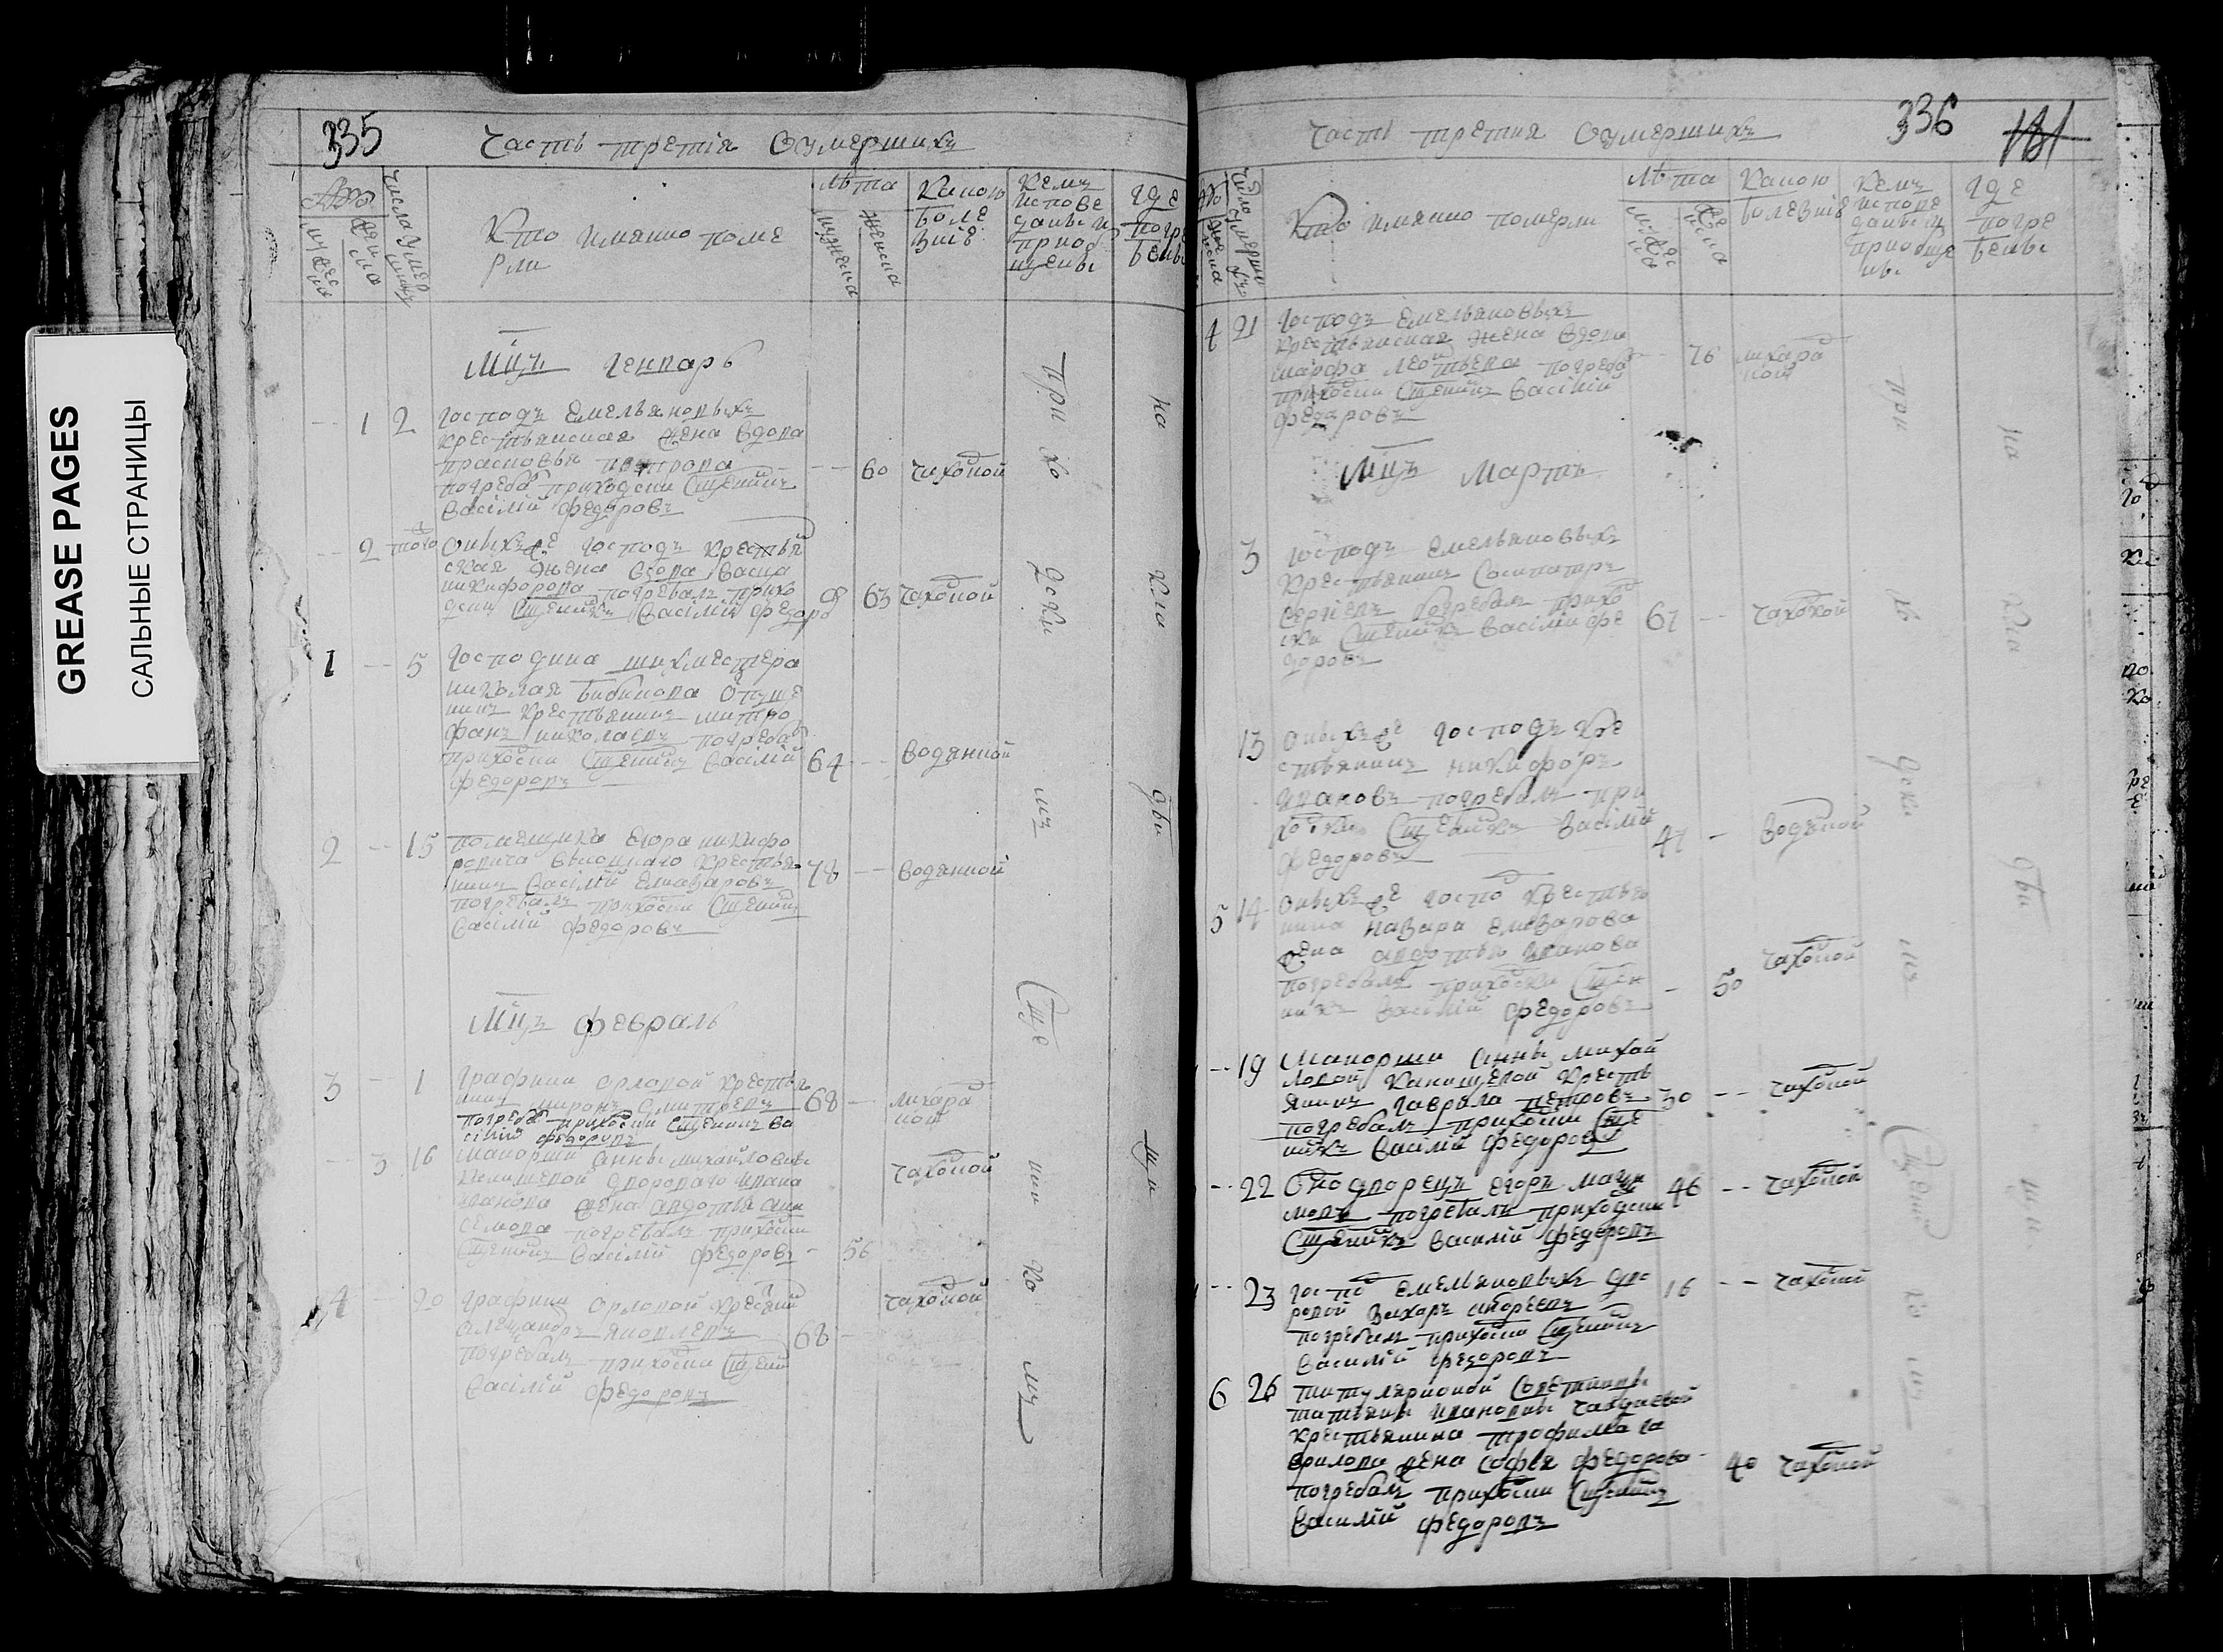 GREASE PAGES
САЛЬНЫЕ СТРАНИЦЫ
335
Часть третія Оумершихъ
Число умершихъ
Кто имянно поме
рли
лѣта
мужеска
женска
Какою
боле
зніе
Кемъ
испове
даны и
приоб
щены
Где
погре
бены
Мцъ Генварь
1 2 Господъ Емельяновыхъ
крестьянская жена вдова
Прасковья Петрова
погребалъ приходски Сщенникъ
Василій Федоровъ
60 чахоткой
2 того Оныхъже Господъ крестьян
ская жена вдова Васса
Никифорова погребалъ прихо
дски Сщенникъ Василій Федоро
63 чахоткой
1 5 Господина шихместера
Николая Бибикова отпуще
никъ крестьянинъ Митро
фанъ Николаевъ погребалъ
приходски Сщенникъ Василій
Федоровъ
64 водянной
2 15 помещика Егора Никифо
ровича крестья
нинъ Василій Елиазаровъ
погребалъ приходски Сщенникъ
Василій Федоровъ
78 водянной
Мцъ Февраль
3 1 Графини Орловой крестья
нинъ Миронъ Дмитревъ
погребалъ приходски Сщенникъ Ва
силій Федоровъ
68 лихарад
кой
3 16 Маіорши Анны Михайловны
Канищевой двороваго Ивана
Иванова жена Авдотья
погребалъ приходски
Сщенникъ Василій Федоровъ
56 чахоткой
4 20 Графини Орловой
Александръ Яковлевъ
погребалъ приходски Сщенникъ
Василій Федоровъ
68 чахоткой
При хо дски мъ Сще нни ко мъ
на кла дби щи
336
181
Часть третия Оумершихъ
Число умершихъ
Кто имянно померли
лѣта
Какою
болезніе
Кемъ
испове
даны и
приобще
ны
Где
погре
бены
4 21 Господъ Емельяновыхъ
крестьянская жена вдова
Марфа Леонтьева погреба
приходски Сщенникъ Василій
Федоровъ
76 лихарад
кой
Мцъ Мартъ
3 Господъ Емельяновыхъ
крестьянинъ Сосипатръ
Сергіевъ погребалъ приход
ски Сщенникъ Василій Фе
доровъ
67 чахоткой
13 Оныхъже Господъ кре
стьянинъ Никифоръ
Ивановъ погребалъ при
ходски Сщенникъ Василій
Федоровъ
47 водяной
5 14 Оныхъже Господ крестья
нина Назара Елизарова
жена Авдотья Иванова
погребалъ приходски Сщен
никъ Василій Федоровъ
50 чахоткой
19 Маиорши Анны Михай
ловой Канищевой кресть
янинъ Гаврила Петровъ
погребалъ приходски Сще
никъ Василій Федоровъ
30 чахоткой
22 Однодворецъ Егоръ
погребалъ приходски
Сщенникъ Василій Федоровъ
46 чахоткой
23 Господ Емельяновыхъ дво
ровой Захаръ Андреевъ
погребалъ приходски Сщенникъ
Василій Федоровъ
16 чахоткой
6 26 титулярной Советницы
Татьяны Ивановны Чаадаевой
крестьянина Трофима Га
врилова жена Софья Федорова
погребалъ приходски Сщенникъ
Василій Федоровъ
40 чахоткой
При хо дски мъ Сщенни ко мъ
на кла дби щи